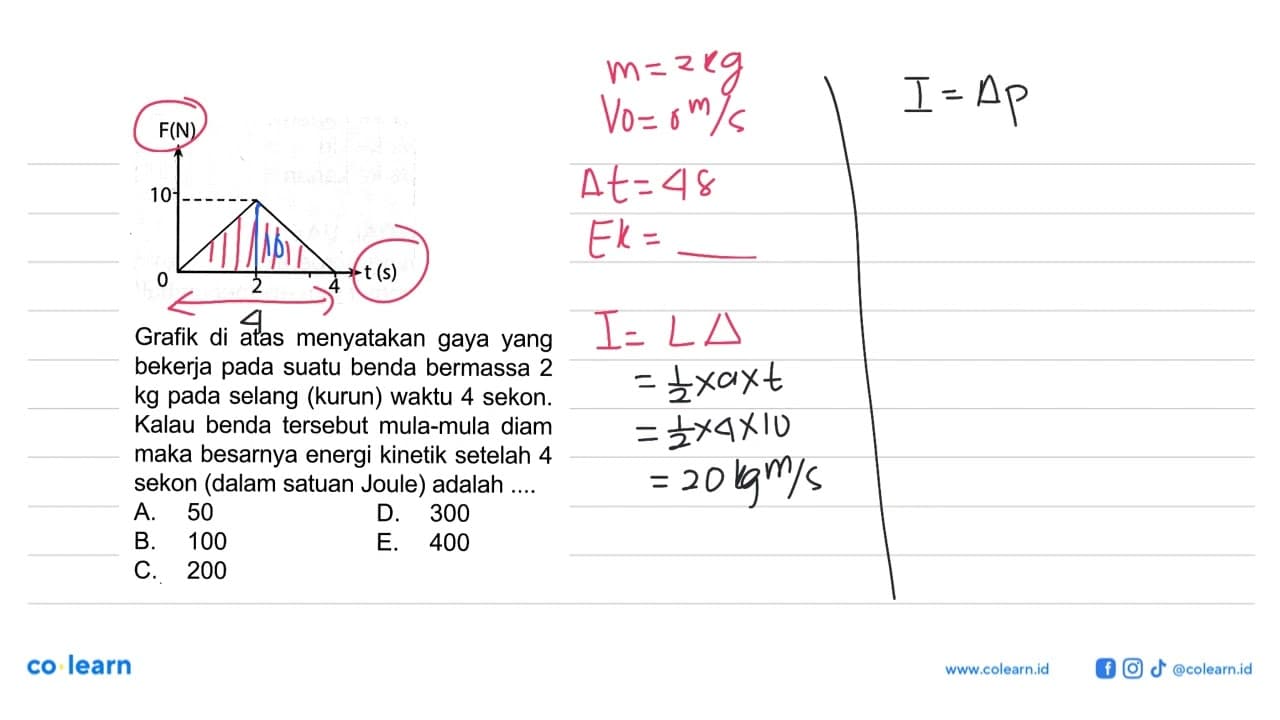 F(N)
10
0
2
4
t (s)
10
4
Grafik di atas menyatakan gaya yang
bekerja pada suatu benda bermassa 2
kg pada selang (kurun) waktu 4 sekon.
Kalau benda tersebut mula-mula diam
maka besarnya energi kinetik setelah 4
sekon (dalam satuan Joule) adalah ....
A. 50
D. 300
B. 100
E. 400
C. 200
m = 2 kg
Vo = 0 m/s
Δt = 4 s
Ek = __
I = L Δ
= 1/2 x a x t
= 1/2 x 4 x 10
= 20 kg m/s
I = Δp
co·learn
www.colearn.id
@colearn.id